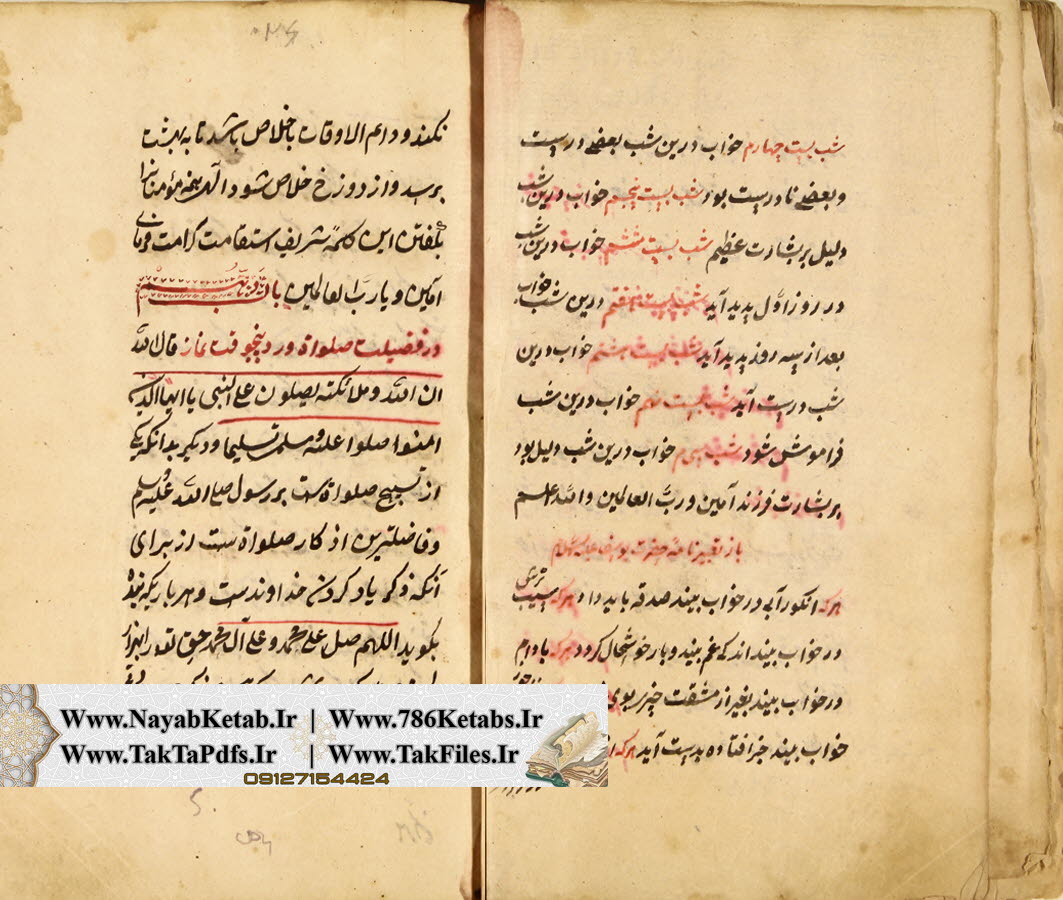 شب بیست چهارم خواب درین شب بعضے درست
و بعضے نادرست بود شب بیست پنجم خواب درین شب
دلیل بر بشارت عظیم شب بیست ششم خواب درین شب
در روز اول پدید آید شب بیست هفتم درین شب خواب
بعد از سه روز پدید آید شب بیست هشتم خواب درین
شب درست آید شب بیست نهم خواب درین شب
فراموش شود شب سی م خواب درین شب دلیل بود
بر بشارت فرزند آمین و ربّ العالمین والله اعلم
باز تعبیر نامه حضرت یوسف علیه السلام
هر که انگور آبی در خواب بیند صدقه باید داد هر که سیب ترش
در خواب بیند اندکے غم بیند و باز خوشحال گردد هر که بادام
در خواب بیند بغیر از مشقت چیز
خواب بیند چیز افتاده بدست آید هر که
نکند و دایم الاوقات باخلاص باشد تا به بهشت
برسد و از دوزخ خلاص شود الهی همه مؤمنانرا
بگفتن این کلمهٔ شریف استقامت کرامت فرمای
آمین و یا ربّ العالمین باب دویم
در فضیلت صلواة ورد پنجوقت نماز قال الله
ان الله و ملائکته یصلون علی النبی یا ایها الذین
امنوا صلوا علیه و سلمو تسلیما و دیگر بدانکه یکے
از تسبیح صلواة است بر رسول صلی الله علیه وسلم
و فاضلترین اذکار صلواة ست از برای
آنکه ذکر یاد کردن خداوندست و هر بار یکه بنده
بگوید اللهم صل علی محمد و علی آل محمد حق تعالی
Www.NayabKetab.Ir | Www.786Ketabs.Ir
Www.TakTaPdfs.Ir | Www.TakFiles.Ir
09127154424